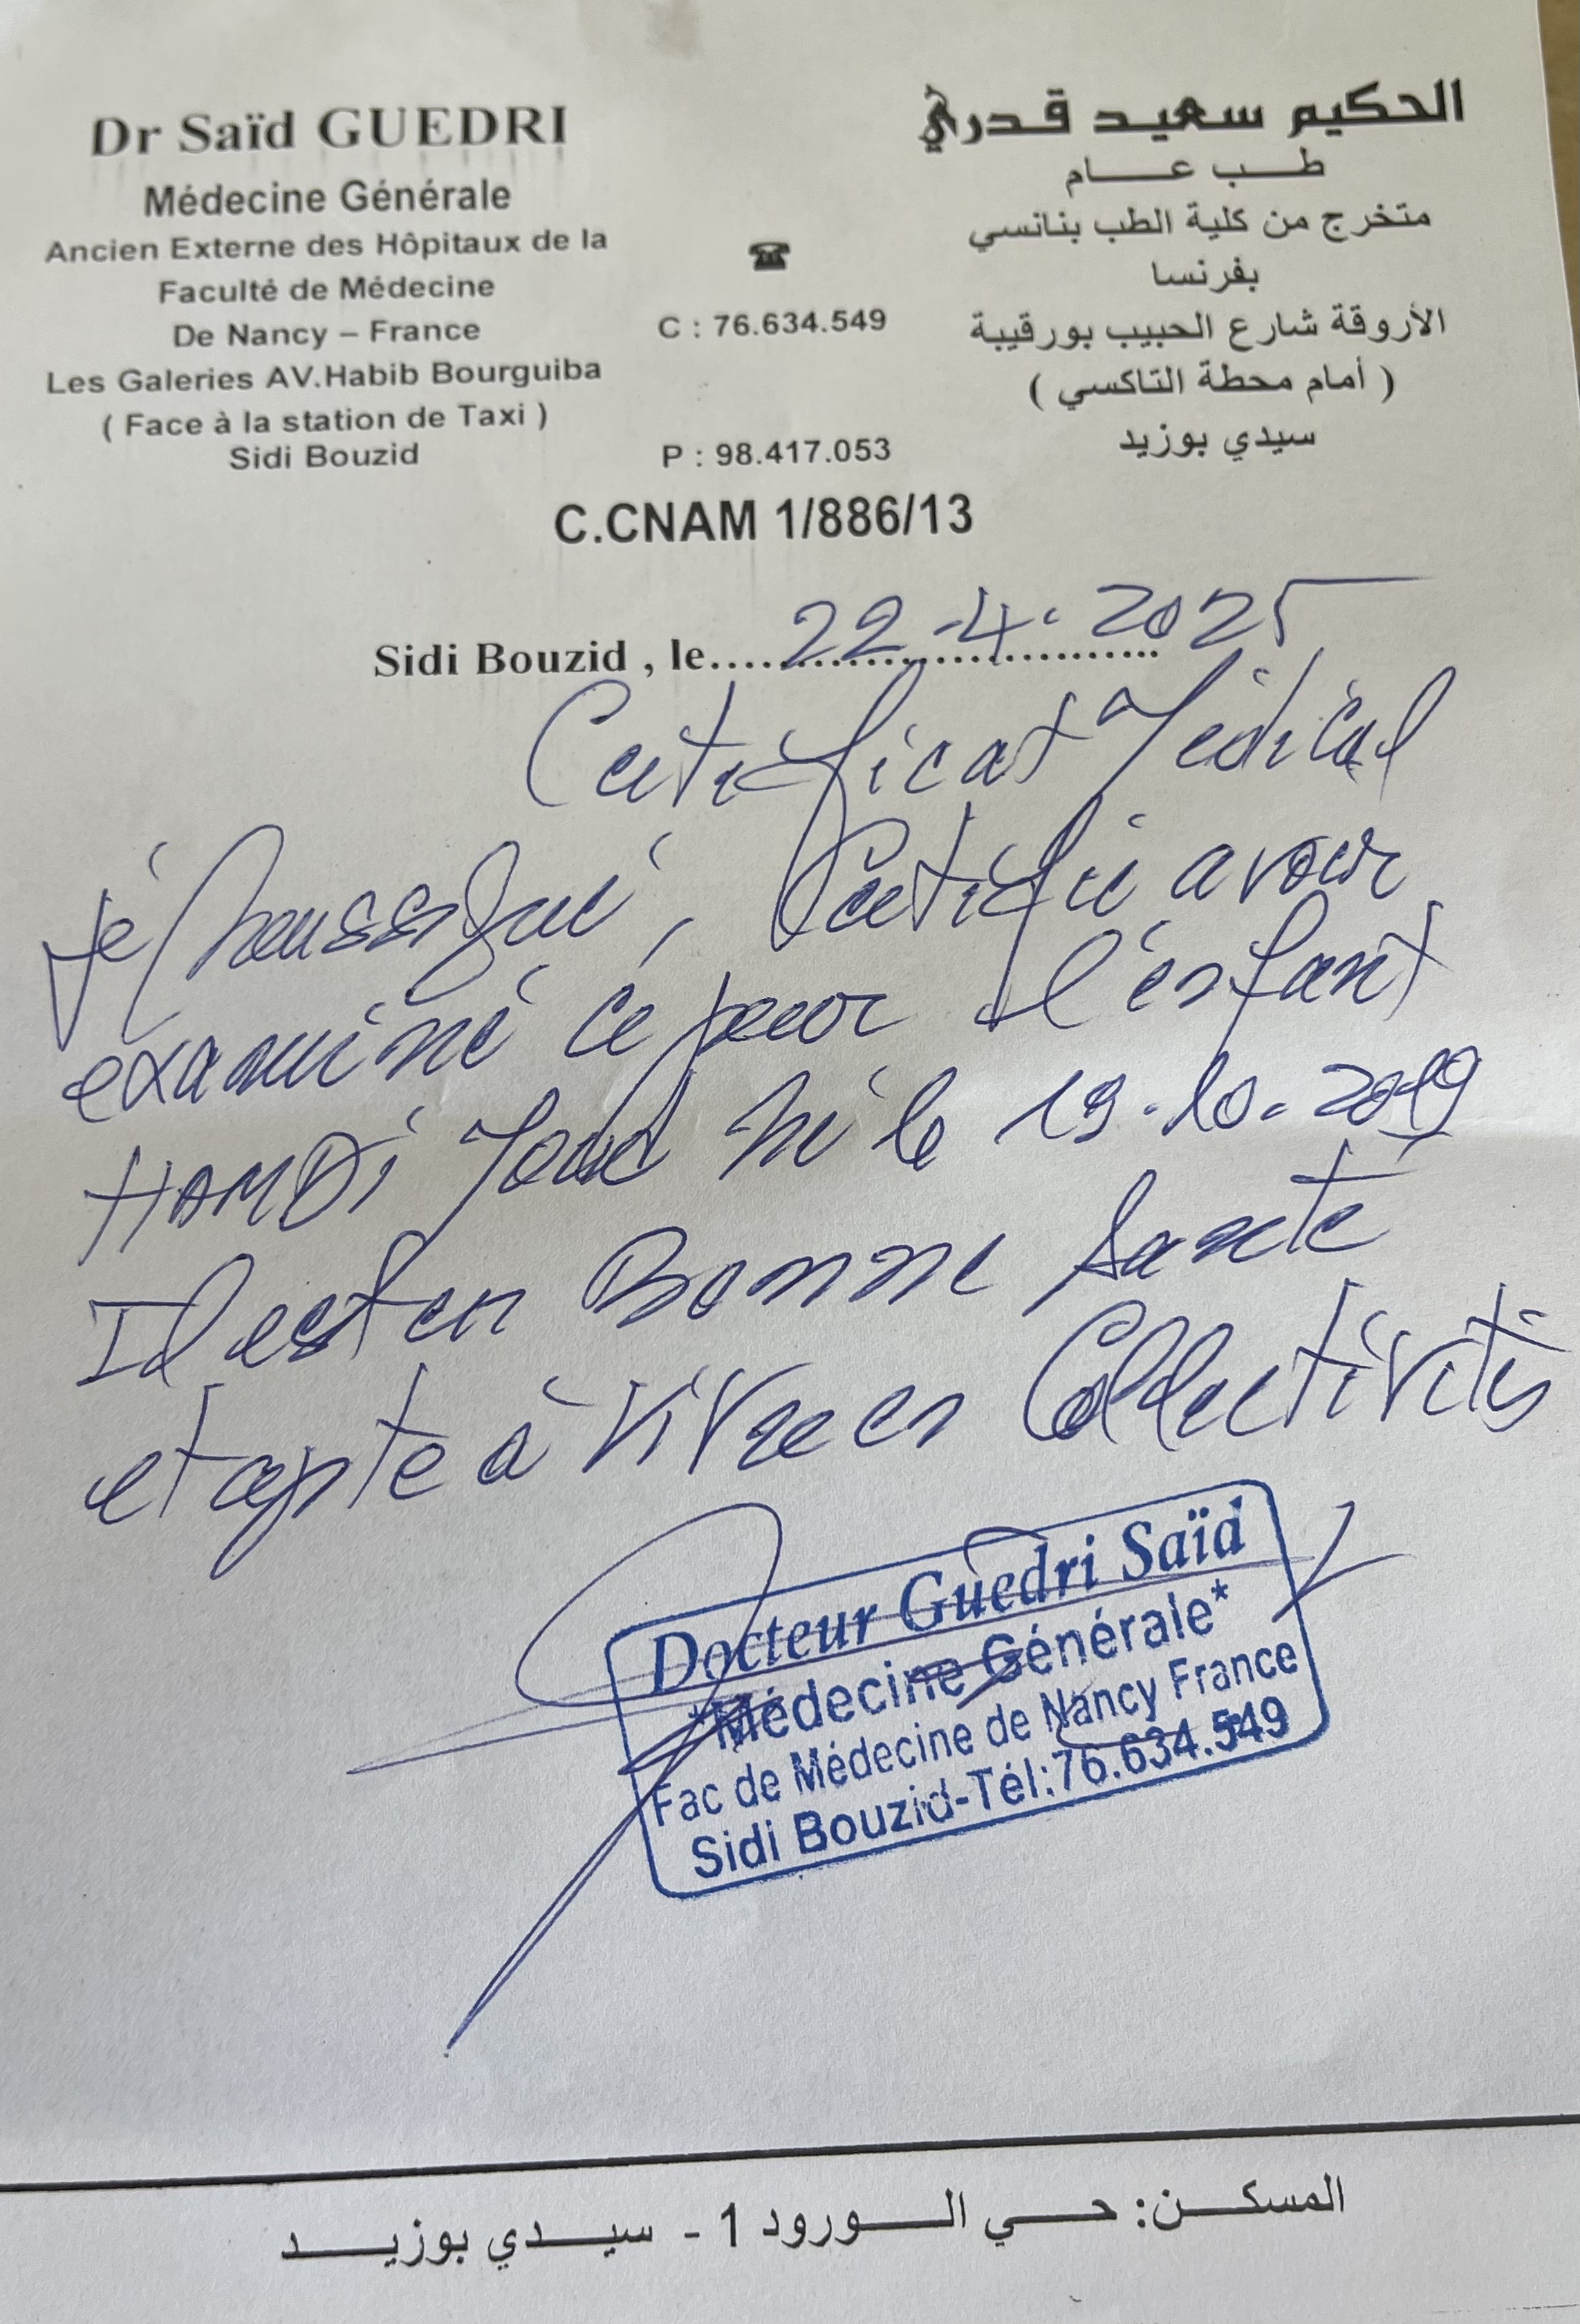 Dr Saïd GUEDRI
Médecine Générale
Ancien Externe des Hôpitaux de la
Faculté de Médecine
De Nancy – France
Les Galeries AV.Habib Bourguiba
( Face à la station de Taxi )
Sidi Bouzid
☎
C : 76.634.549
P : 98.417.053
الحكيم سعيد قدري
طب عام
متخرج من كلية الطب بنانسي
بفرنسا
الأروقة شارع الحبيب بورقيبة
( أمام محطة التاكسي )
سيدي بوزيد
C.CNAM 1/886/13
Sidi Bouzid , le 22-4-2025
Certificat Médical
Je soussigné, Certifie avoir
examiné ce jour l'enfant
HAMDi né le 19.10.2019
Il est en Bonne santé
et apte à vivre en Collectivités
Docteur Guedri Saïd
*Médecine Générale*
Fac de Médecine de Nancy France
Sidi Bouzid-Tél:76.634.549
المسكن: حي الورود 1 - سيدي بوزيد